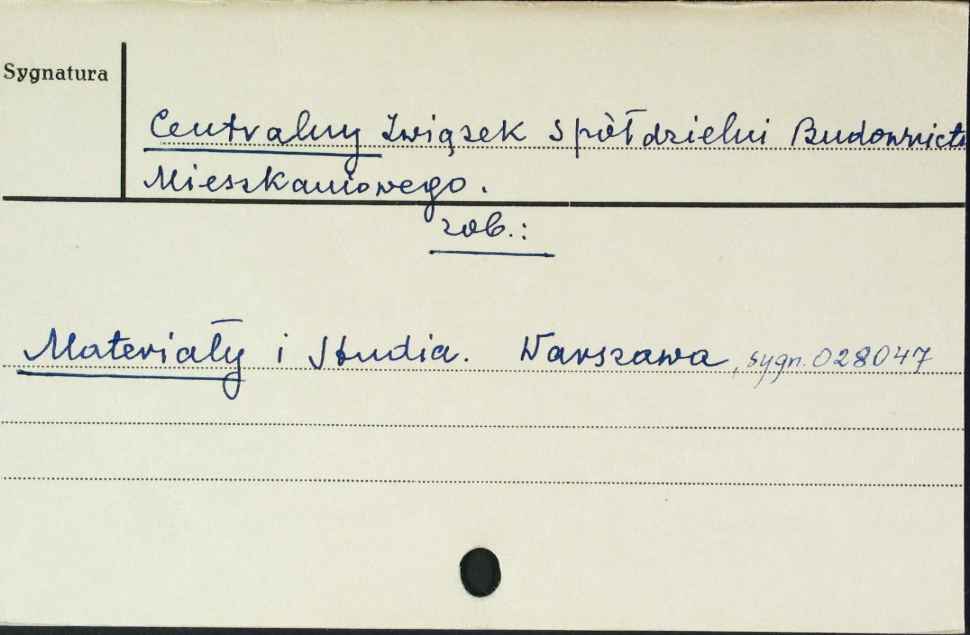 Sygnatura
Centralny Związek Spółdzielni Budownictw
Mieszkaniowego.
zob.:
Materiały i Studia. Warszawa, sygn. 028047